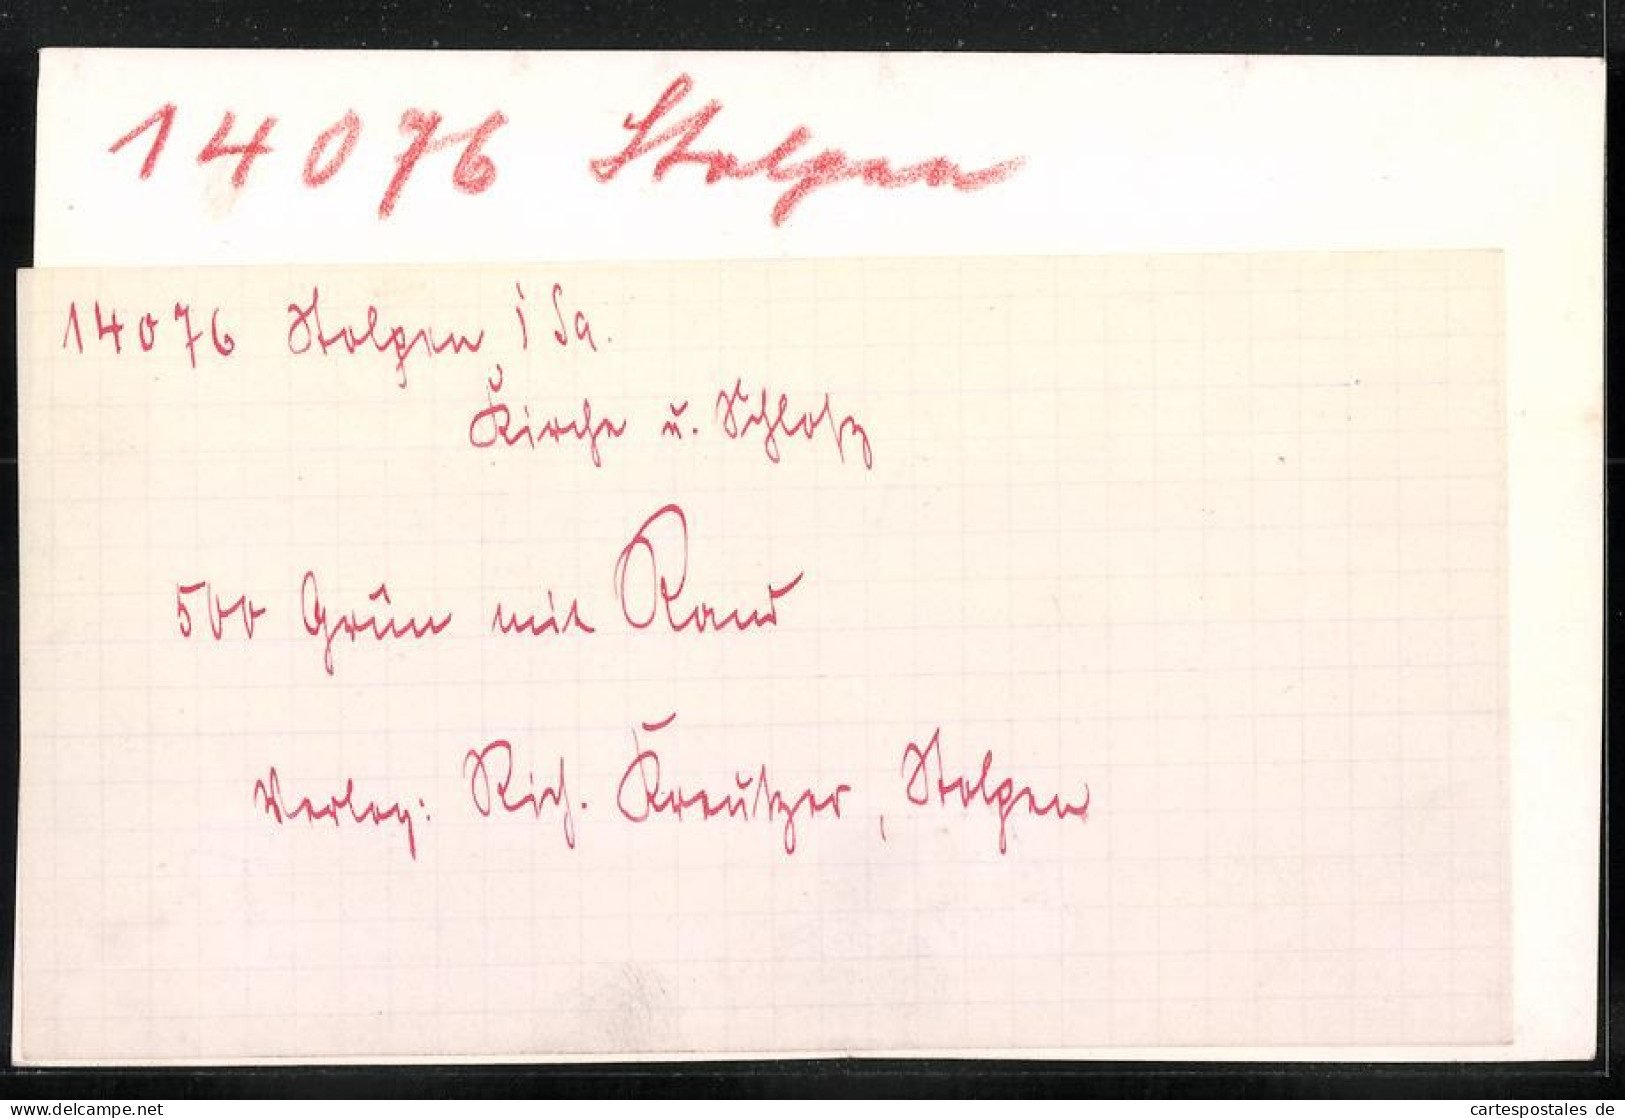 14076 Stolpen
14076 Stolpen i Sa.
Kirche u. Schloß
500 Grün mit Rand
Verlag: Rich. Kreutzer, Stolpen
www.delcampe.net
cartespostales de